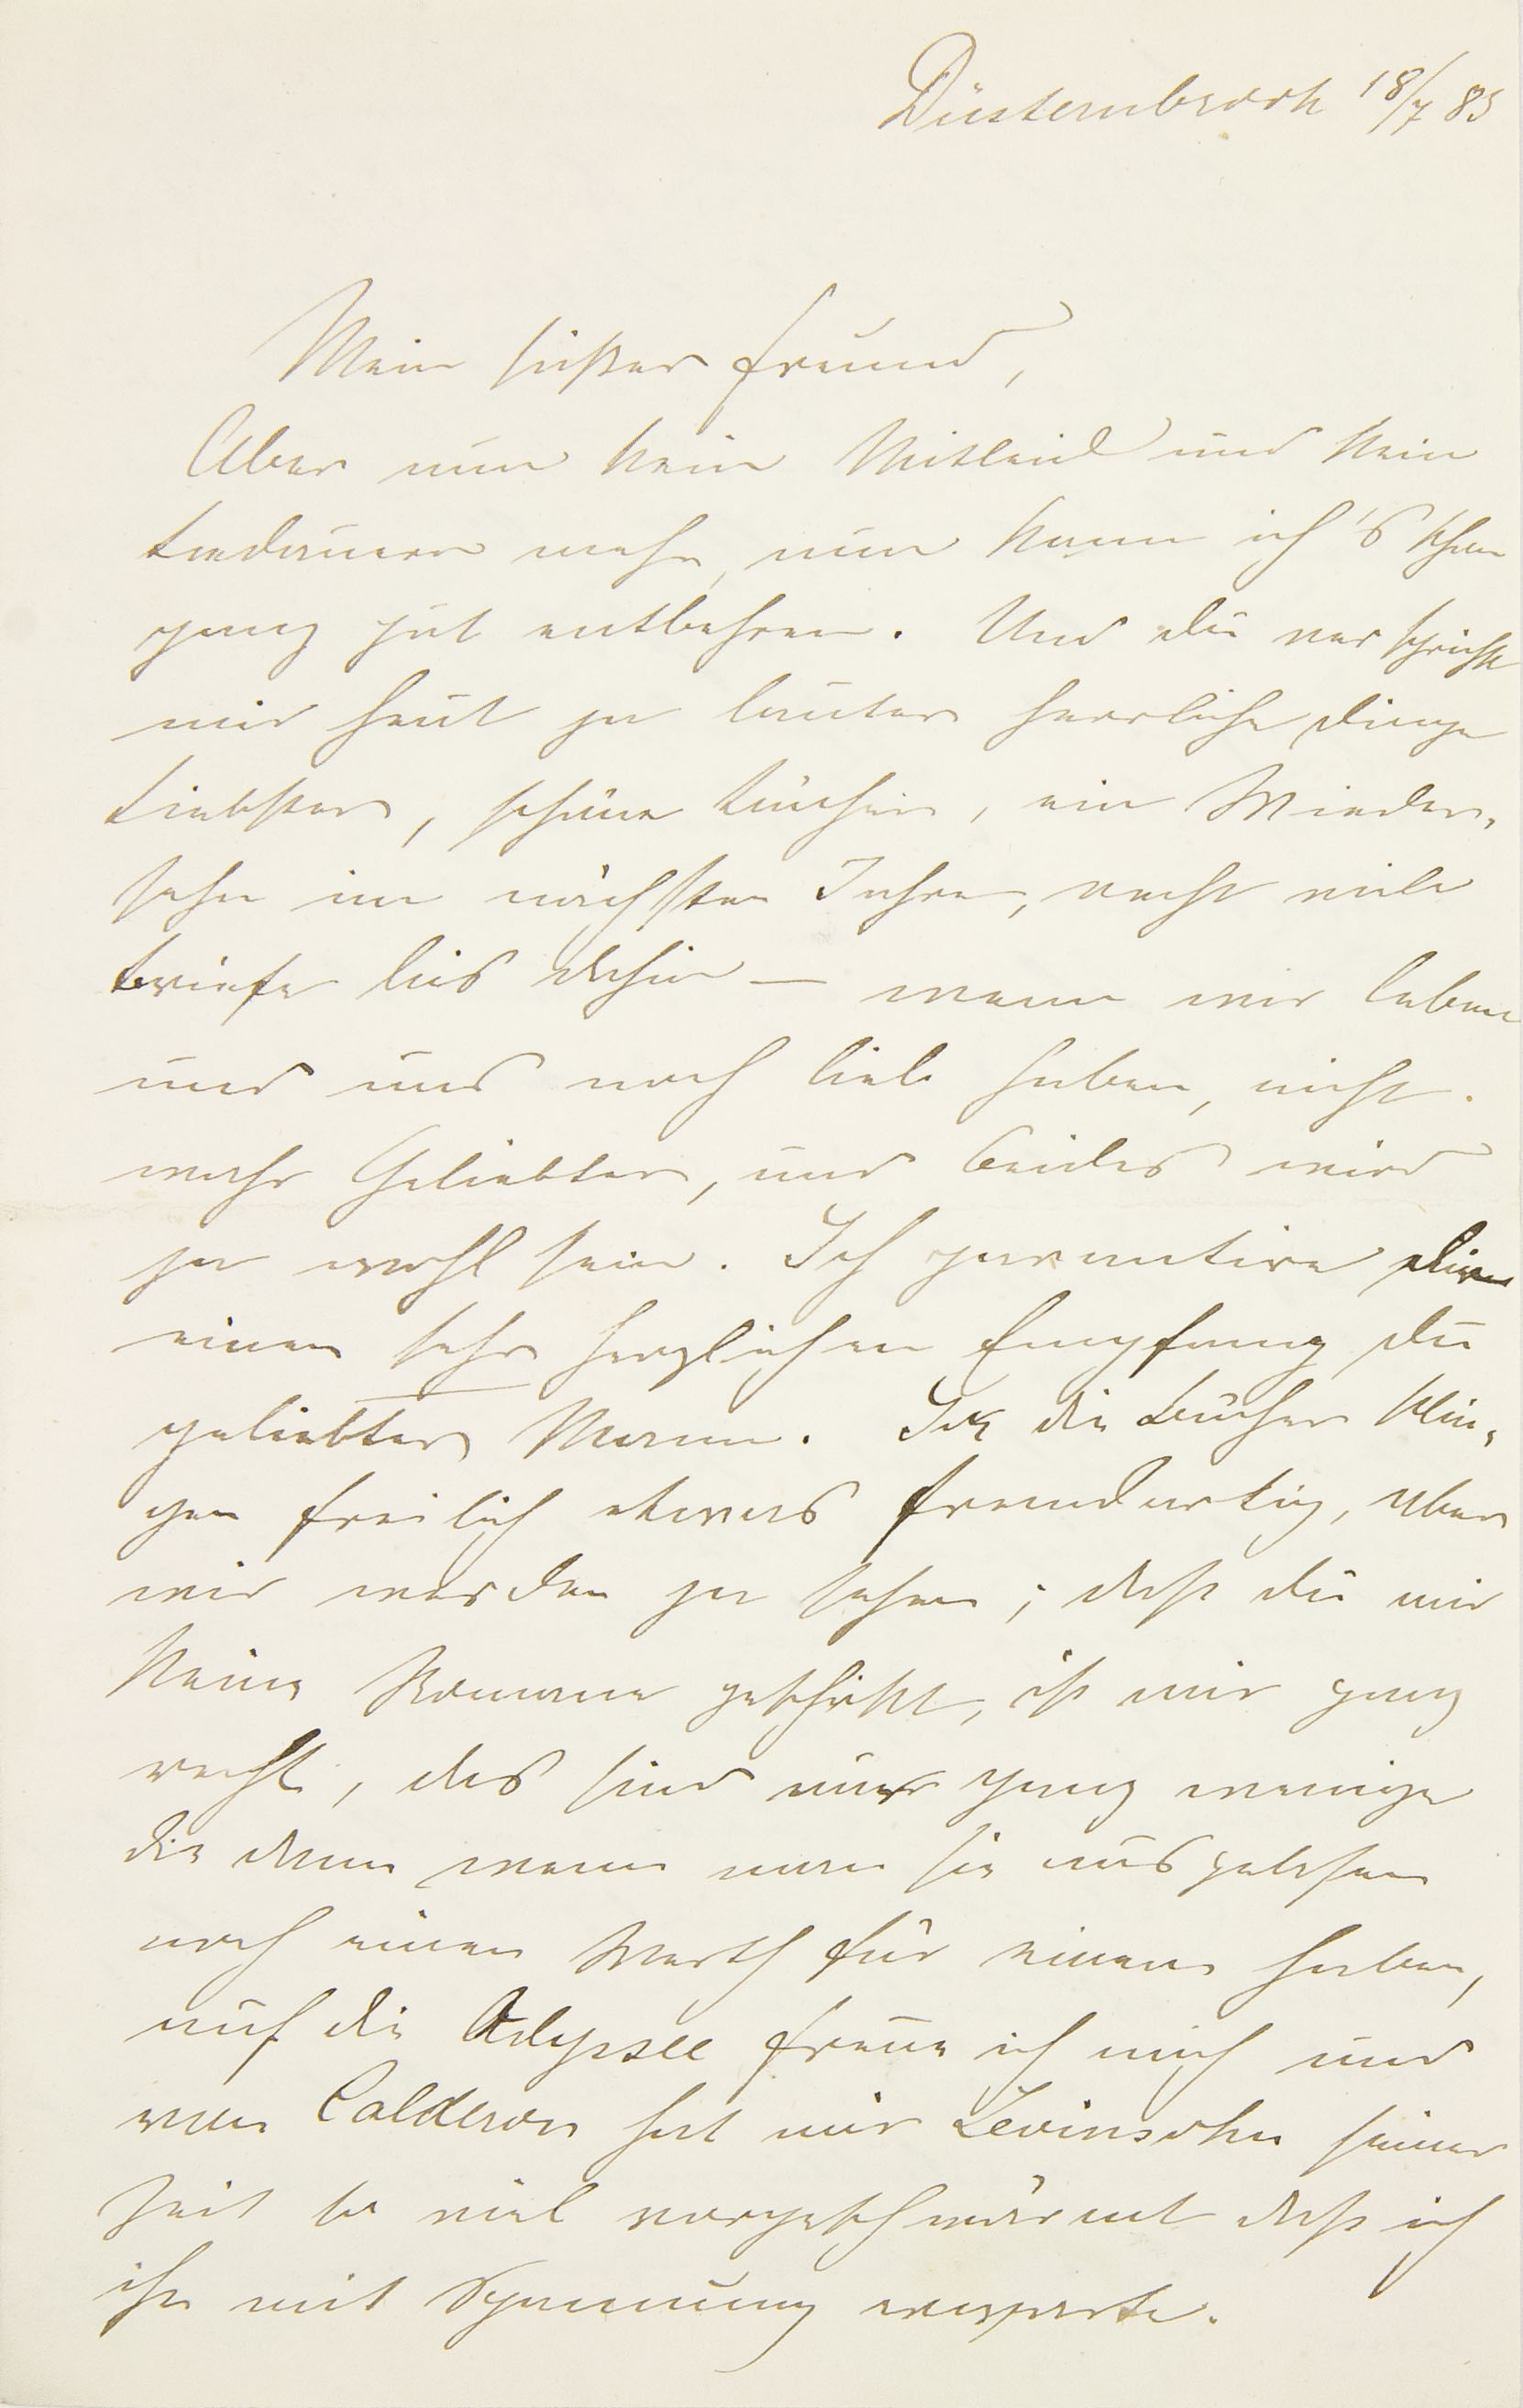 Düsternbrook 18/7 85
Mein süßer Freund,
Aber nun kein Mitleid und kein
Bedauern mehr, nun kann ich's schon
ganz gut entbehren. Und du versprichst
mir heut ja lauter herrliche Dinge
Liebster, schöne Bücher, ein Wieder-
sehn im nächsten Jahre, recht viele
Briefe bis dahin — wenn wir leben
und uns noch lieb haben, nicht
wahr Geliebter, und beides wird
ja wohl sein. Ich garantire dir
einen sehr herzlichen Empfang du
geliebter Mann. die Bücher klin-
gen freilich etwas fremdartig, aber
wir werden ja sehen; daß du mir
keine Romane geschickt, ist mir ganz
recht, das sind nur ganz wenige
die dann wenn man sie ausgelesen
noch einen Werth für einen haben,
auf die Odyssee freue ich mich und
von Calderon hat mir Levinsohn seiner
Zeit so viel vorgeschwärmt daß ich
ihn mit Spannung erwarte.